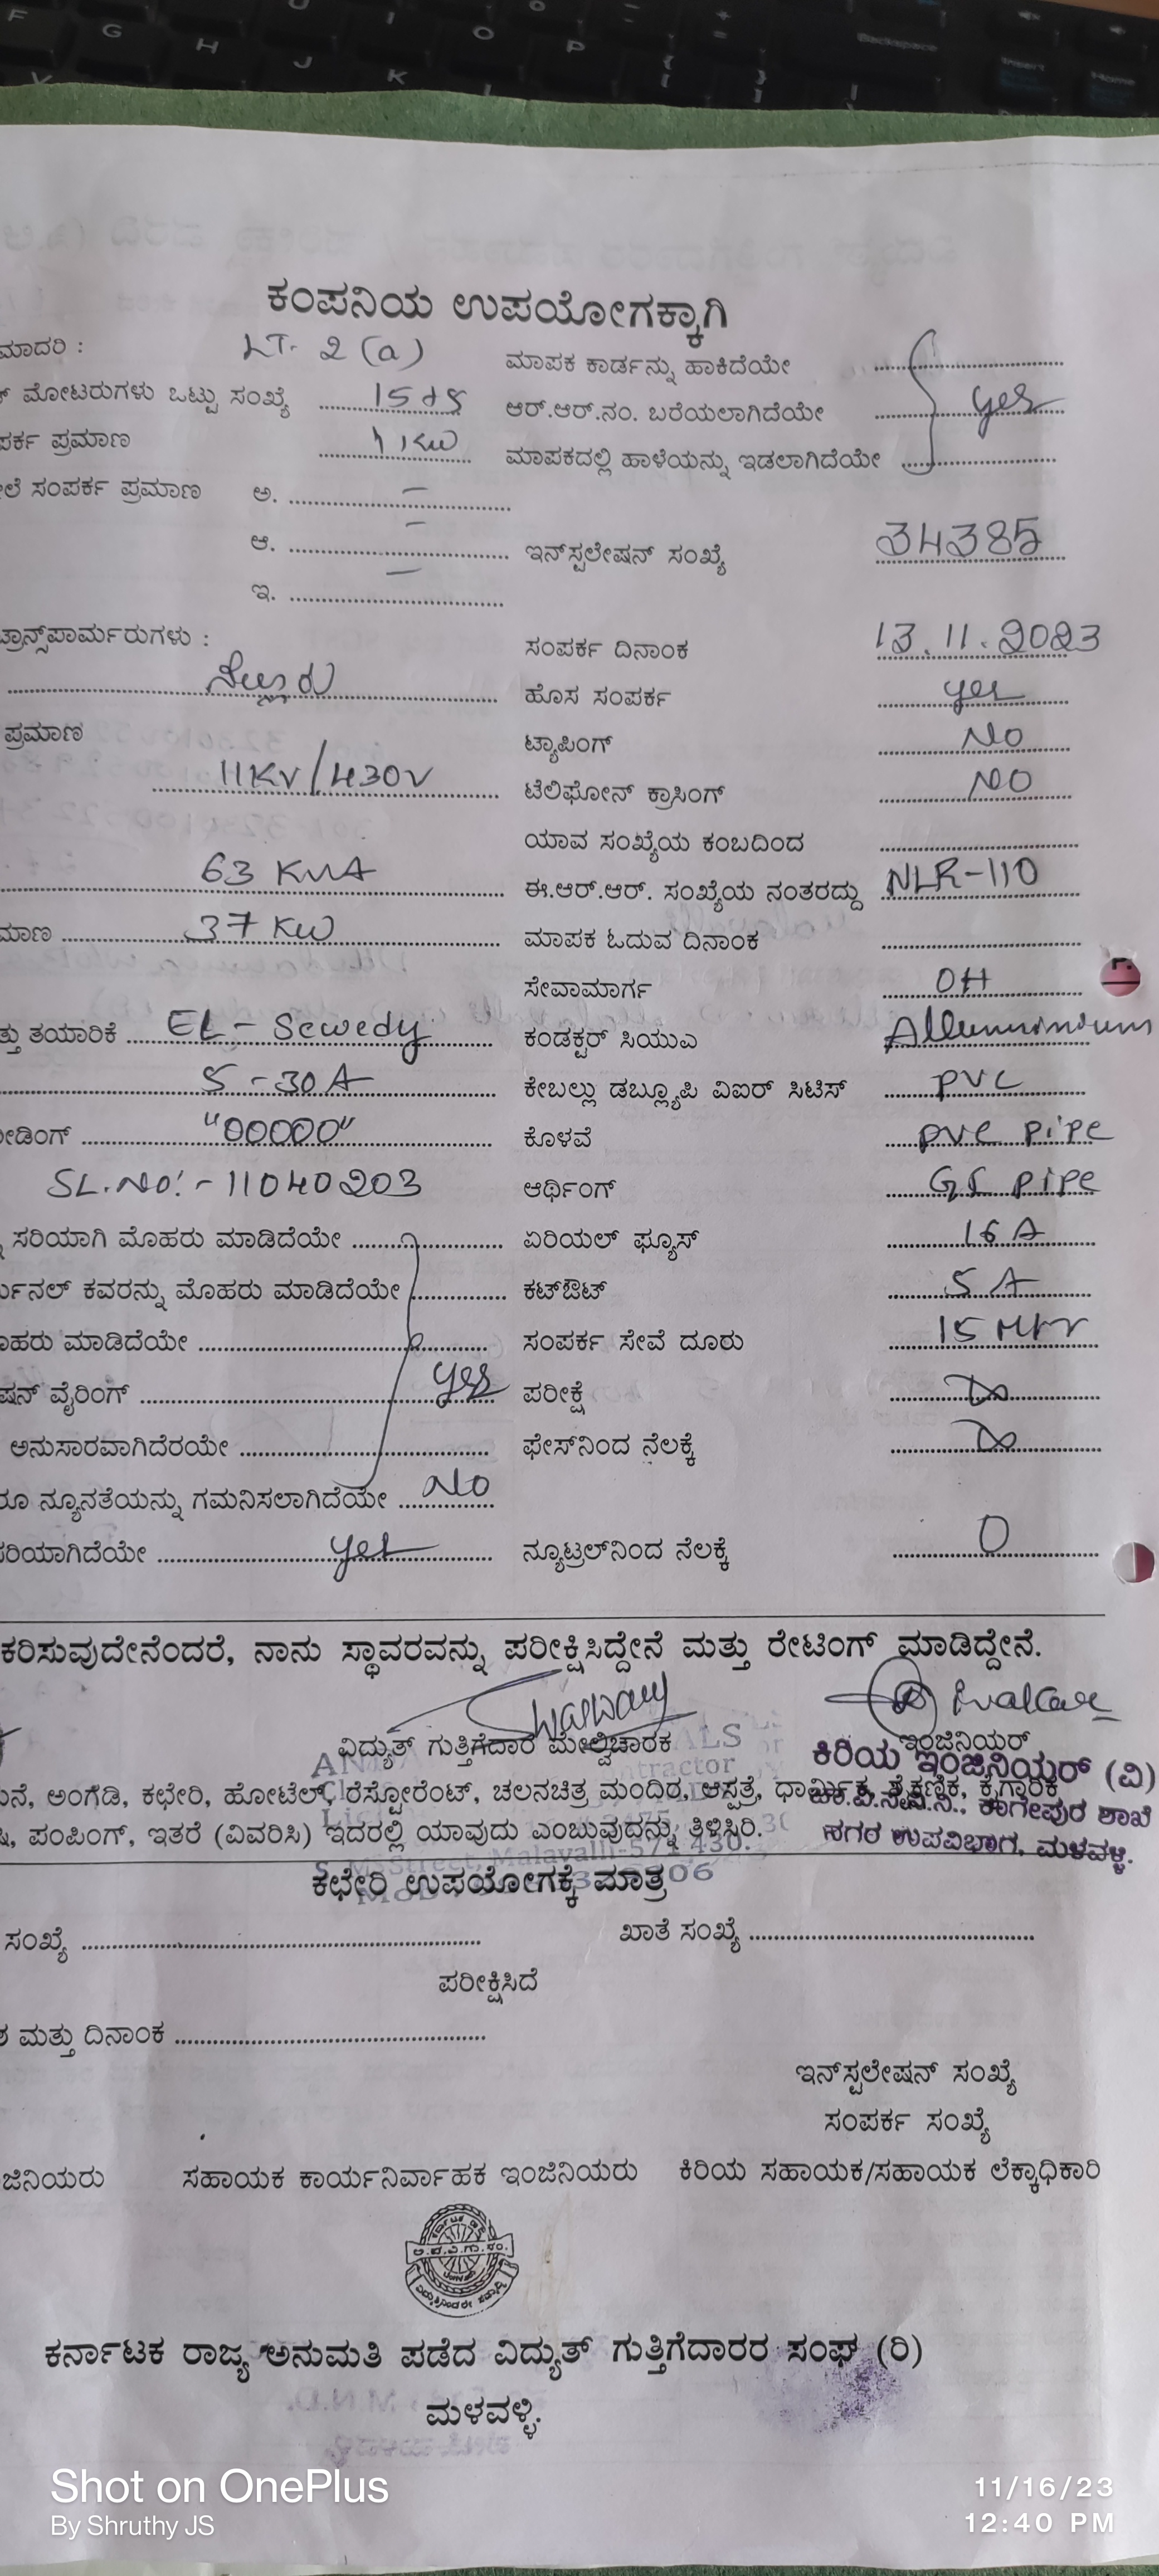 ಕಂಪನಿಯ ಉಪಯೋಗಕ್ಕಾಗಿ
ಮಾದರಿ : LT- 2 (a) ಮಾಪಕ ಕಾರ್ಡನ್ನು ಹಾಕಿದೆಯೇ
ಮೋಟರುಗಳು ಒಟ್ಟು ಸಂಖ್ಯೆ ಆರ್.ಆರ್.ನಂ. ಬರೆಯಲಾಗಿದೆಯೇ yes
ಪರ್ಕ ಪ್ರಮಾಣ 1 KW ಮಾಪಕದಲ್ಲಿ ಹಾಳೆಯನ್ನು ಇಡಲಾಗಿದೆಯೇ
ಲೆ ಸಂಪರ್ಕ ಪ್ರಮಾಣ ಅ. –
ಆ. – ಇನ್‌ಸ್ಟಲೇಷನ್ ಸಂಖ್ಯೆ 34385
ಇ. –
ಟ್ರಾನ್ಸ್‌ಪಾರ್ಮರುಗಳು : ಸಂಪರ್ಕ ದಿನಾಂಕ 13.11.2023
ಹೊಸ ಸಂಪರ್ಕ yes
ಪ್ರಮಾಣ ಟ್ಯಾಪಿಂಗ್ No
11KV/430V ಟೆಲಿಫೋನ್ ಕ್ರಾಸಿಂಗ್ NO
ಯಾವ ಸಂಖ್ಯೆಯ ಕಂಬದಿಂದ
63 KVA ಈ.ಆರ್.ಆರ್. ಸಂಖ್ಯೆಯ ನಂತರದ್ದು NLR-110
ಮಾಣ 37 KW ಮಾಪಕ ಓದುವ ದಿನಾಂಕ
ಸೇವಾಮಾರ್ಗ OH
ತ್ತು ತಯಾರಿಕೆ EL - Sewedy ಕಂಡಕ್ಟರ್ ಸಿಯುಎ Allumindum
5 - 30 A ಕೇಬಲ್ಲು ಡಬ್ಲ್ಯೂಪಿ ವಿಐರ್ ಸಿಟಿಸ್ PVC
ೀಡಿಂಗ್ "00000" ಕೊಳವೆ PVC PiPE
SL.No:- 11040203 ಆರ್ಥಿಂಗ್ GI PiPE
ಸರಿಯಾಗಿ ಮೊಹರು ಮಾಡಿದೆಯೇ ಏರಿಯಲ್ ಫ್ಯೂಸ್ 16 A
ರ್ಮಿನಲ್ ಕವರನ್ನು ಮೊಹರು ಮಾಡಿದೆಯೇ ಕಟ್‌ಔಟ್ 5 A
ೊಹರು ಮಾಡಿದೆಯೇ ಸಂಪರ್ಕ ಸೇವೆ ದೂರು 15 Mtr
ಷನ್ ವೈರಿಂಗ್ yes ಪರೀಕ್ಷೆ ∞
ಅನುಸಾರವಾಗಿದೆರಯೇ ಫೇಸ್‌ನಿಂದ ನೆಲಕ್ಕೆ ∞
ರೂ ನ್ಯೂನತೆಯನ್ನು ಗಮನಿಸಲಾಗಿದೆಯೇ No
ಸರಿಯಾಗಿದೆಯೇ yes ನ್ಯೂಟ್ರಲ್‌ನಿಂದ ನೆಲಕ್ಕೆ 0
ಕರಿಸುವುದೇನೆಂದರೆ, ನಾನು ಸ್ಥಾವರವನ್ನು ಪರೀಕ್ಷಿಸಿದ್ದೇನೆ ಮತ್ತು ರೇಟಿಂಗ್ ಮಾಡಿದ್ದೇನೆ.
ವಿದ್ಯುತ್ ಗುತ್ತಿಗೆದಾರ ಮೇಲ್ವಿಚಾರಕ ಇಂಜಿನಿಯರ್
ಕಿರಿಯ ಇಂಜಿನಿಯರ್ (ವಿ)
ನೆ, ಅಂಗಡಿ, ಕಛೇರಿ, ಹೋಟೆಲ್, ರೆಸ್ಟೋರೆಂಟ್, ಚಲನಚಿತ್ರ ಮಂದಿರ, ಆಸ್ಪತ್ರೆ, ಧಾರ್ಮಿಕ, ಶೈಕ್ಷಣಿಕ, ಕೈಗಾರಿಕೆ
ಕಾಗೇಪುರ ಶಾಖೆ
ಪಂಪಿಂಗ್, ಇತರೆ (ವಿವರಿಸಿ) ಇದರಲ್ಲಿ ಯಾವುದು ಎಂಬುವುದನ್ನು ತಿಳಿಸಿರಿ.
ನಗರ ಉಪವಿಭಾಗ, ಮಳವಳ್ಳಿ.
Malavalli-571 430.
ಕಛೇರಿ ಉಪಯೋಗಕ್ಕೆ ಮಾತ್ರ
ಸಂಖ್ಯೆ ಖಾತೆ ಸಂಖ್ಯೆ
ಪರೀಕ್ಷಿಸಿದೆ
ಮತ್ತು ದಿನಾಂಕ
ಇನ್‌ಸ್ಟಲೇಷನ್ ಸಂಖ್ಯೆ
ಸಂಪರ್ಕ ಸಂಖ್ಯೆ
ಜಿನಿಯರು ಸಹಾಯಕ ಕಾರ್ಯನಿರ್ವಾಹಕ ಇಂಜಿನಿಯರು ಕಿರಿಯ ಸಹಾಯಕ/ಸಹಾಯಕ ಲೆಕ್ಕಾಧಿಕಾರಿ
ಕರ್ನಾಟಕ ರಾಜ್ಯ ಅನುಮತಿ ಪಡೆದ ವಿದ್ಯುತ್ ಗುತ್ತಿಗೆದಾರರ ಸಂಘ (ರಿ)
ಮಳವಳ್ಳಿ.
Shot on OnePlus 11/16/23
By Shruthy JS 12:40 PM